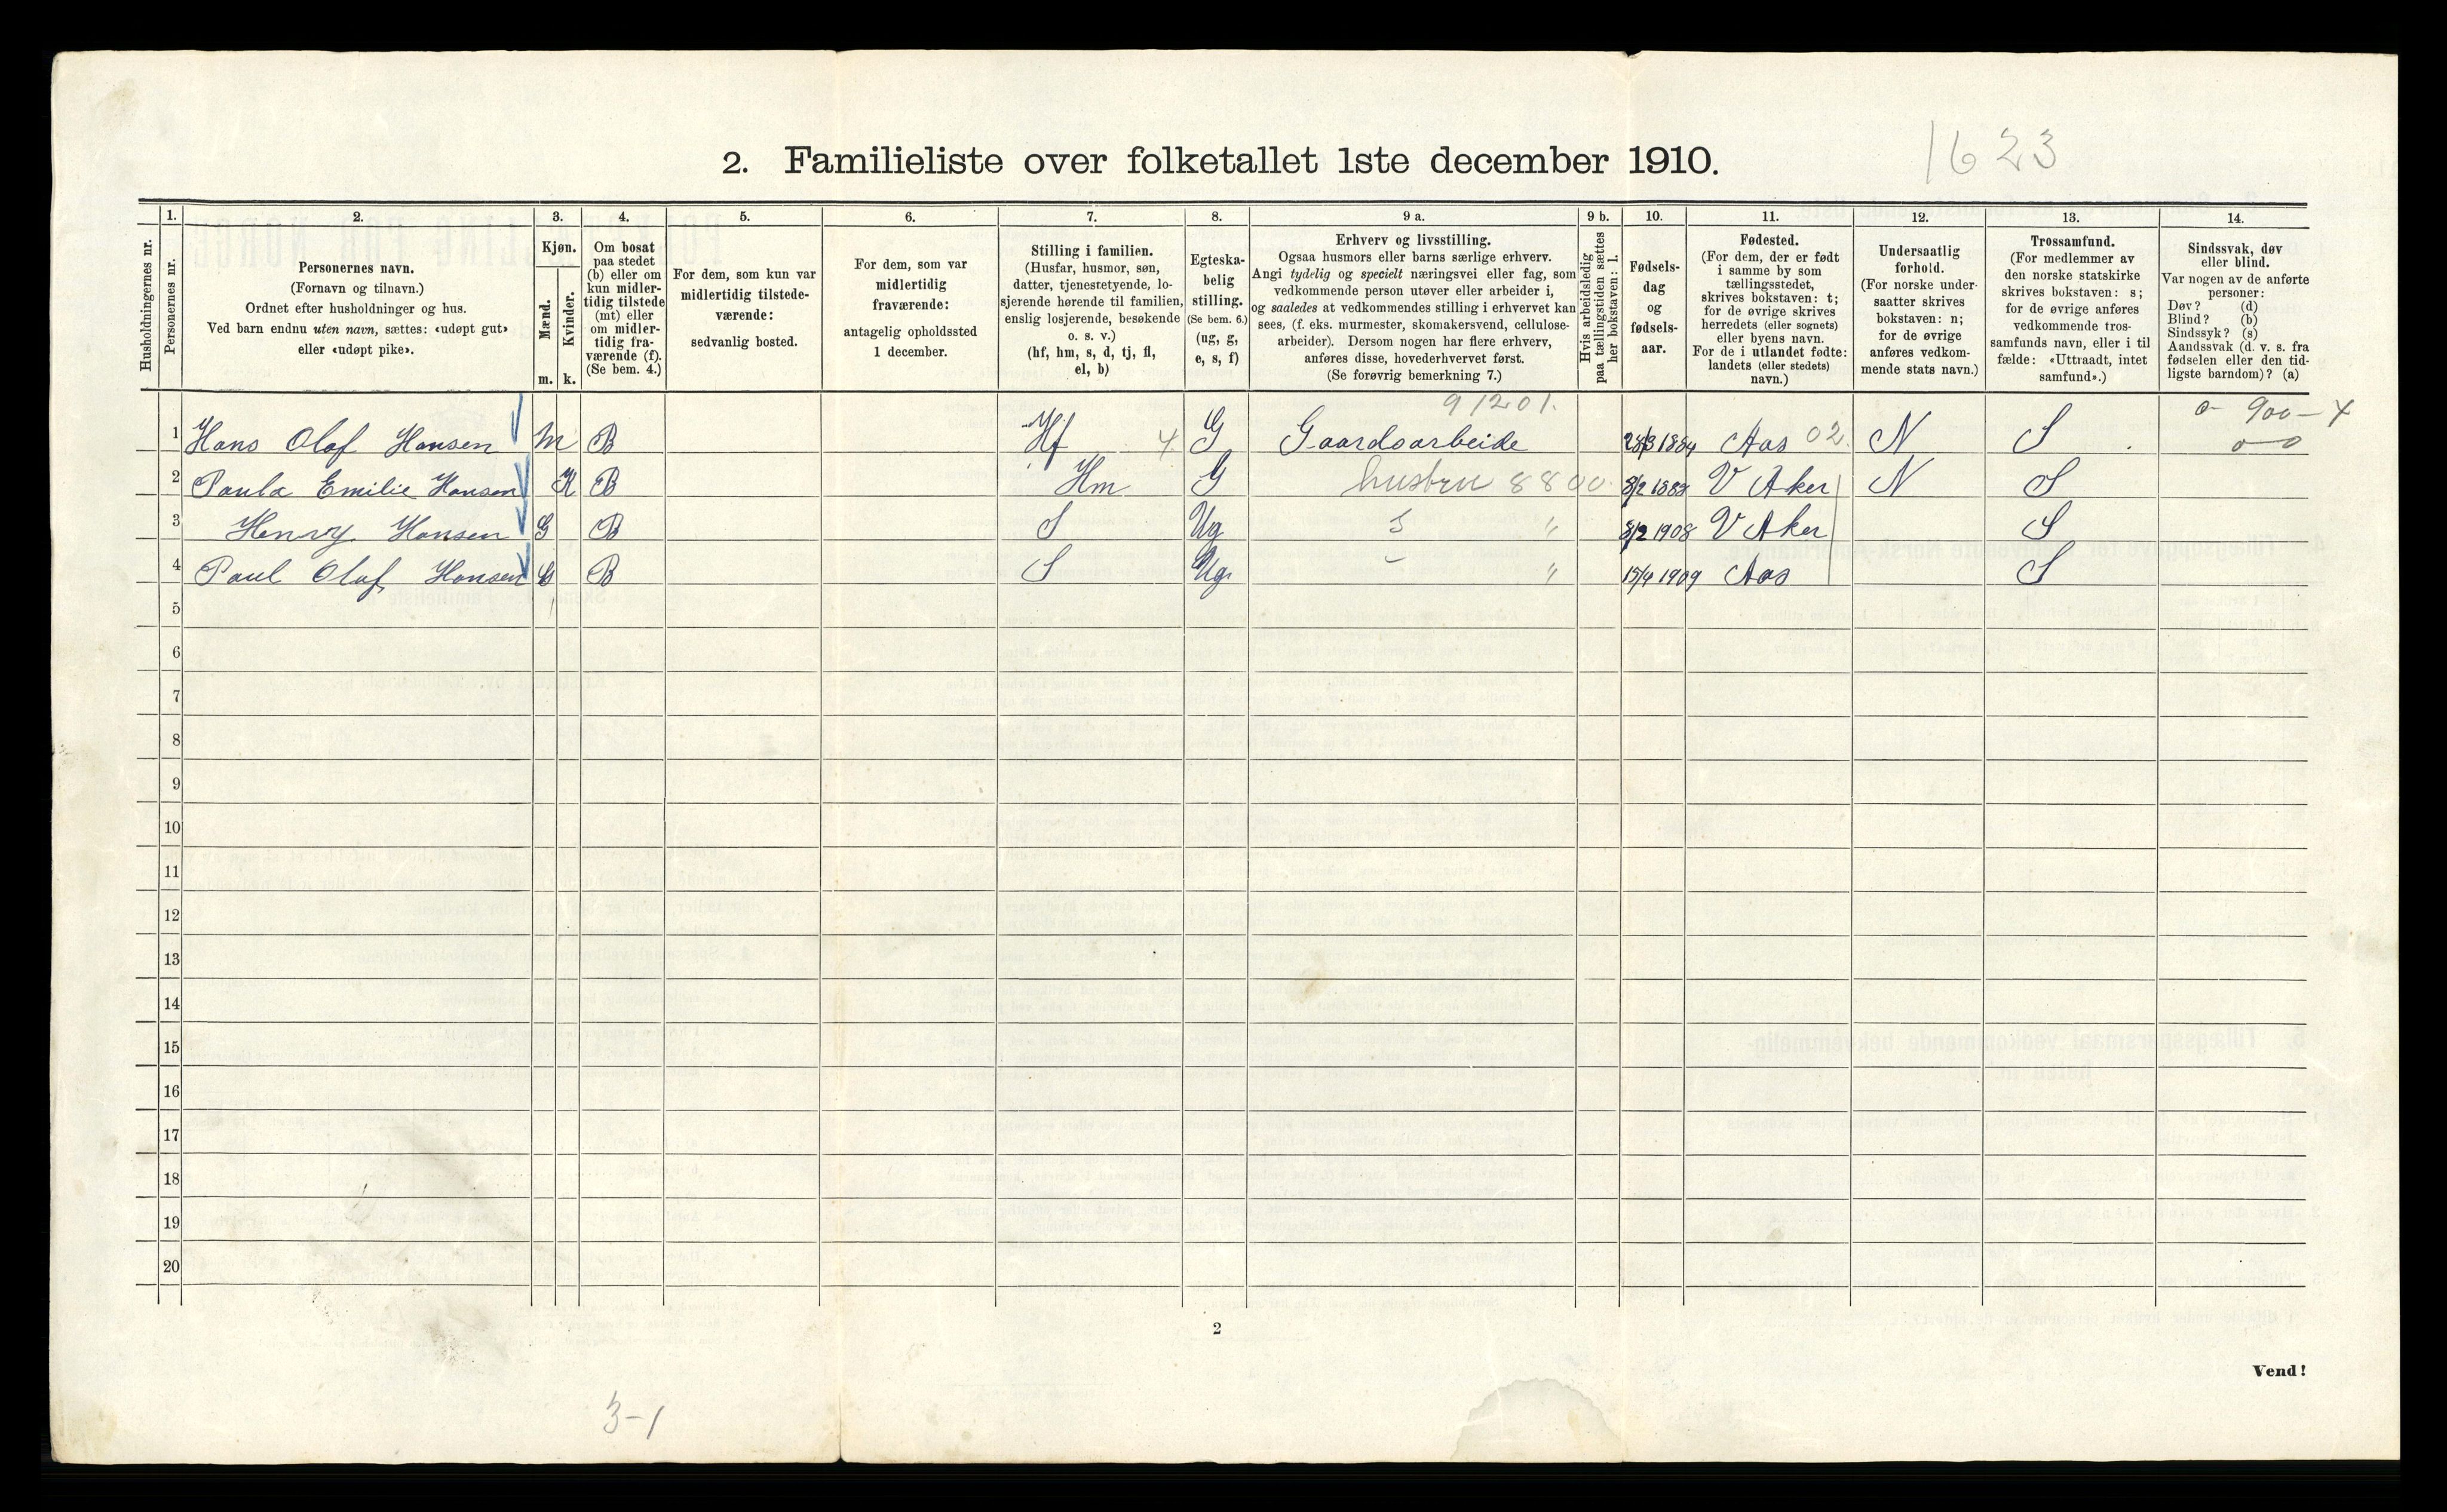 1623
2. Familieliste over folketallet 1ste december 1910.
Husholdningernes nr.
1. Personernes nr.
2. Personernes navn.
(Fornavn og tilnavn.)
Ordnet efter husholdninger og hus.
Ved barn endnu uten navn, sættes: «udøpt gut»
eller «udøpt pike».
3. Kjøn.
Mænd. m.
Kvinder. k.
4. Om bosat
paa stedet
(b) eller om
kun midler-
tidig tilstede
(mt) eller
om midler-
tidig fra-
værende (f).
(Se bem. 4.)
5. For dem, som kun var
midlertidig tilstede-
værende:
sedvanlig bosted.
6. For dem, som var
midlertidig
fraværende:
antagelig opholdssted
1 december.
7. Stilling i familien.
(Husfar, husmor, søn,
datter, tjenestetyende, lo-
sjerende hørende til familien,
enslig losjerende, besøkende
o. s. v.)
(hf, hm, s, d, tj, fl,
el, b)
8. Egteska-
belig
stilling.
(Se bem. 6.)
(ug, g,
e, s, f)
9 a. Erhverv og livsstilling.
Ogsaa husmors eller barns særlige erhverv.
Angi tydelig og specielt næringsvei eller fag, som
vedkommende person utøver eller arbeider i,
og saaledes at vedkommendes stilling i erhvervet kan
sees, (f. eks. murmester, skomakersvend, cellulose-
arbeider). Dersom nogen har flere erhverv,
anføres disse, hovederhvervet først.
(Se forøvrig bemerkning 7.)
9 b. Hvis arbeidsledig
paa tællingstiden sættes
her bokstaven: l.
10. Fødsels-
dag
og
fødsels-
aar.
11. Fødested.
(For dem, der er født
i samme by som
tællingsstedet,
skrives bokstaven: t;
for de øvrige skrives
herredets (eller sognets)
eller byens navn.
For de i utlandet fødte:
landets (eller stedets)
navn.)
12. Undersaatlig
forhold.
(For norske under-
saatter skrives
bokstaven: n;
for de øvrige
anføres vedkom-
mende stats navn.)
13. Trossamfund.
(For medlemmer av
den norske statskirke
skrives bokstaven: s;
for de øvrige anføres
vedkommende tros-
samfunds navn, eller i til
fælde: «Uttraadt, intet
samfund».)
14. Sindssvak, døv
eller blind.
Var nogen av de anførte
personer:
Døv? (d)
Blind? (b)
Sindssyk? (s)
Aandssvak (d. v. s. fra
fødselen eller den tid-
ligste barndom)? (a)
91201. 0- 900-4
1 Hans Olaf Hansen m B Hf 4 G Gaardsarbeide 1884 Aas 02. N S 0-0
2 Paula Emilie Hansen K B Hm G hustru 8800. V Aker N S
3 Henry Hansen G B S Ug S " 8/2 1908 V Aker S
4 Paul Olaf Hansen G B S Ug. - " 15/4 1909 Aas S
5
6
7
8
9
10
11
12
13
14
15
16
17
18
19
20
2
Vend!
3-1